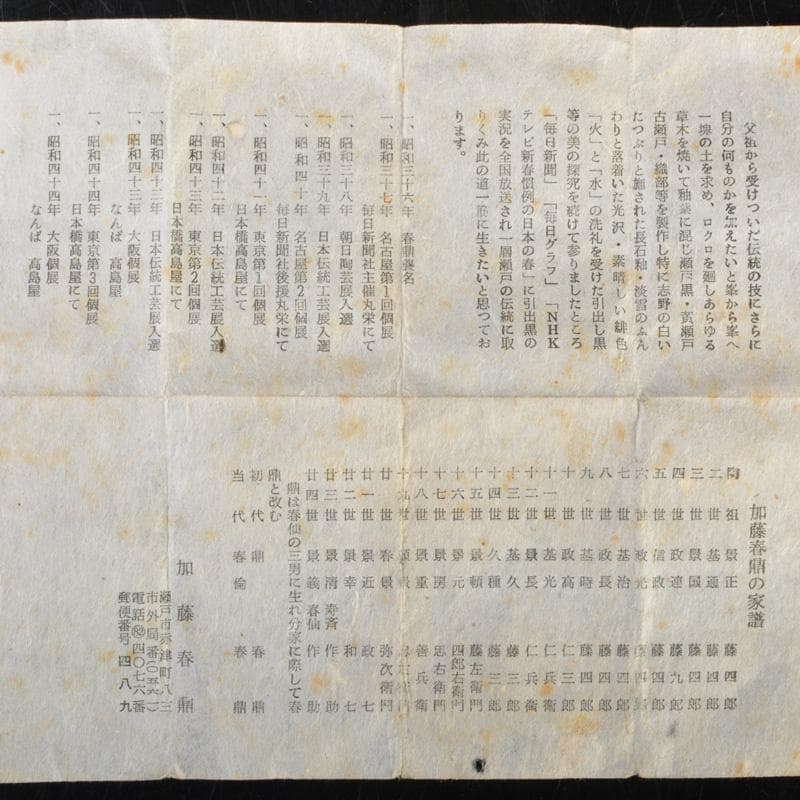 父祖から受けついだ伝統の技にさらに
自分の何ものかを加えたいと峯から峯へ
一塊の土を求め、ロクロを廻しあらゆる
草木を焼いて釉薬に混じ瀬戸黒・黄瀬戸
古瀬戸・織部等を製作し特に志野の白い
たっぷりと施された長石釉・淡雪のふん
わりと落着いた光沢・素晴しい緋色
「火」と「水」の洗礼を受けた引出し黒
等の美の探究を続けて参りましたところ
「毎日新聞」「毎日グラフ」「NHK
テレビ新春慣例の日本の春」に引出黒の
実況を全国放送され一層瀬戸の伝統に取
りくみ此の道一筋に生きたいと思つてお
ります。
一、昭和三十六年 春鼎襲名
一、昭和三十七年 名古屋第1回個展
毎日新聞社主催丸栄にて
一、昭和三十八年 朝日陶芸展入選
一、昭和三十九年 日本伝統工芸展入選
一、昭和四十年 名古屋第2回個展
毎日新聞社後援丸栄にて
一、昭和四十一年 東京第1回個展
日本橋高島屋にて
一、昭和四十二年 日本伝統工芸展入選
一、昭和四十三年 東京第2回個展
日本橋高島屋にて
一、昭和四十三年 日本伝統工芸展入選
一、昭和四十三年 大阪個展
なんば 高島屋
一、昭和四十四年 東京第3回個展
日本橋高島屋にて
一、昭和四十四年 大阪個展
なんば 高島屋
加藤春鼎の家譜
陶祖 景正 藤四郎
二世 基通 藤四郎
三世 景国 藤四郎
四世 政連 藤九郎
五世 信政 藤四郎
六世 政光 藤四郎
七世 基治 藤四郎
八世 政長 藤四郎
九世 基時 藤四郎
十世 政高 仁三郎
十一世 基光 仁兵衛
十二世 景長 仁兵衛
十三世 基久 藤三郎
十四世 久種 藤三郎
十五世 景頼 藤左衛門
十六世 景元 四郎右衛門
十七世 景房 忠右衛門
十八世 景重 善兵衛
十九世
廿世 春景 弥次衛門
廿一世 景近 政七
廿二世 景幸 和七
廿三世 景清 寿斉 作助
廿四世 景義 春仙 作助
鼎は春仙の三男に生れ分家に際して春
鼎と改む
初代 鼎 春鼎
当代 春倫 春鼎
加藤春鼎
瀬戸市赤津町八三
市外局番(〇五六一)
電話(82)四〇七六番
郵便番号 四八九